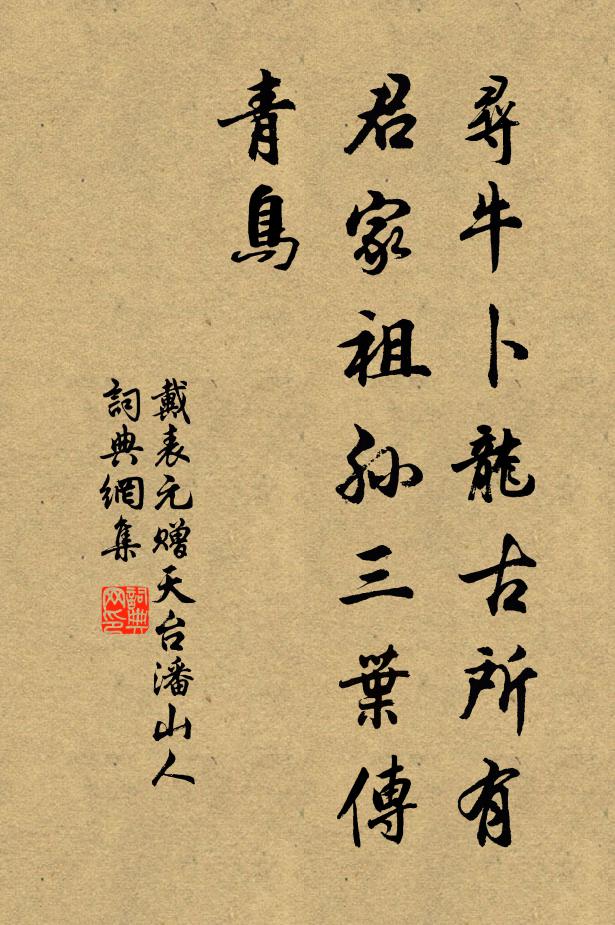 尋牛卜龍古所有
君家祖孫三葉傳
青鳥
戴表元赠天台潘山人
詞典網集
詞典网印